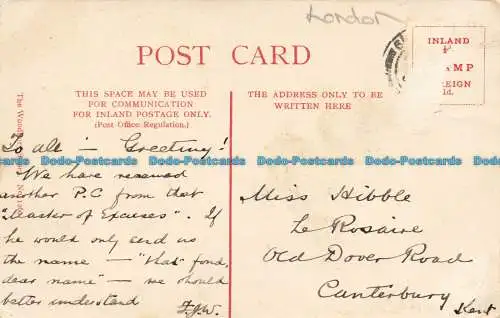 London
POST CARD
THIS SPACE MAY BE USED
FOR COMMUNICATION
FOR INLAND POSTAGE ONLY.
(Post Office Regulation.)
THE ADDRESS ONLY TO BE
WRITTEN HERE
INLAND
AMP
EIGN
1d.
To all — Greeting!
We have received
another P.C. from that
"Master of Excuses". If
he would only send us
the name — "that fond,
dear name" — we should
better understand
F.J.W.
Miss Hibble
Le Rosaire
Old Dover Road
Canterbury
Kent
Dodo-Postcards Dodo-Postcards Dodo-Postcards Dodo-Postcards
Dodo-Postcards Dodo-Postcards Dodo-Postcards Dodo-Postcards